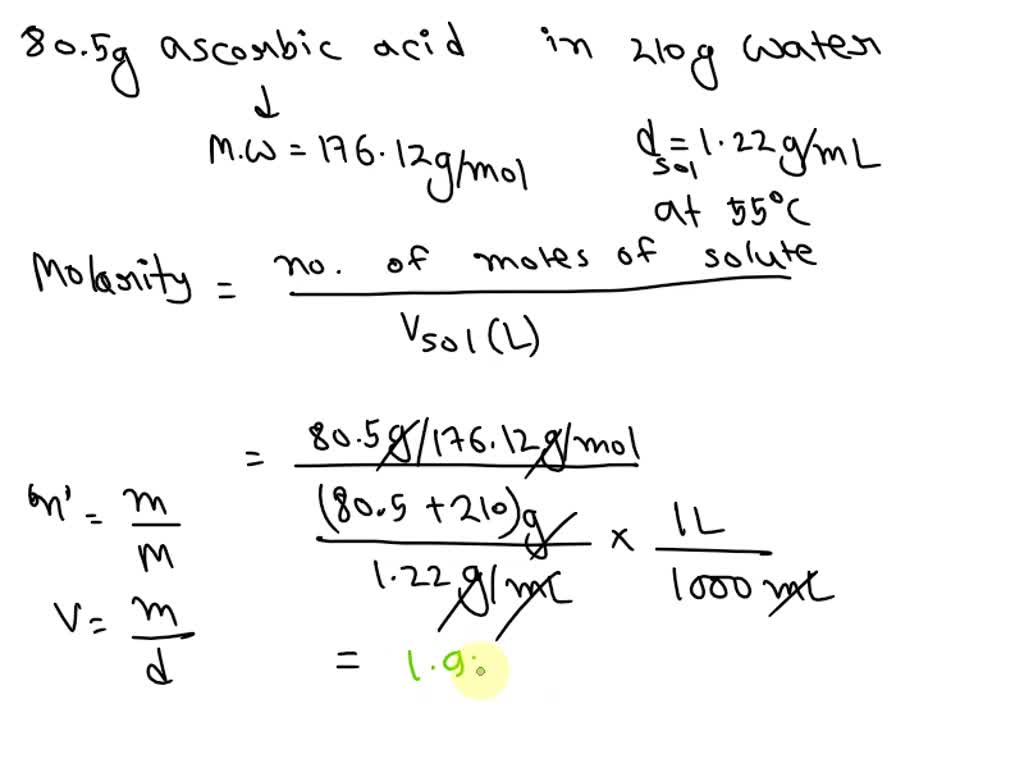 80.5g ascorbic acid in 210g water
↓
M.W = 176.12g/mol
d sol = 1.22g/mL
at 55°C
Molarity = no. of moles of solute / Vsol(L)
= 80.5g/176.12g/mol
(80.5 + 210)g / 1.22g/mL × 1L / 1000 mL
'n' = m / M
V = m / d
= 1.9